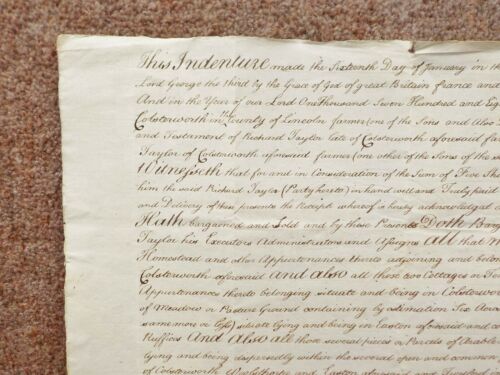 This Indenture made the Sixteenth Day of January in th
Lord George the third by the Grace of God of great Britain france and
And in the Year of our Lord One thousand Seven Hundred and Eig
Colsterworth in the County of Lincoln farmer (one of the Sons and also De
and Testament of Richard Taylor late of Colsterworth aforesaid far
Taylor of Colsterworth aforesaid farmer (one other of the Sons of the sa
Witnesseth that for and in Consideration of the Sum of Five Shi
him the said Richard Taylor (Party hereto) in hand well and Truly paid
and Delivery of these presents the Receipt whereof is hereby acknowledged
Hath bargained and Sold and by these Presents Doth Barg
Taylor his Executors Administrators and Assigns all that
Homestead and other Appurtenances thereto adjoining and belon
Colsterworth aforesaid and also all those two Cottages or Te
Appurtenances thereto belonging situate and being in Colsterwor
of Meadow or Pasture Ground containing by estimation Six Acre
same more or less) situate lying and being in Easton aforesaid and ca
And also all those several pieces or Parcels of Arable
lying and being dispersedly within the several open and common
of Colsterworth Woolsthorpe and Easton aforesaid and